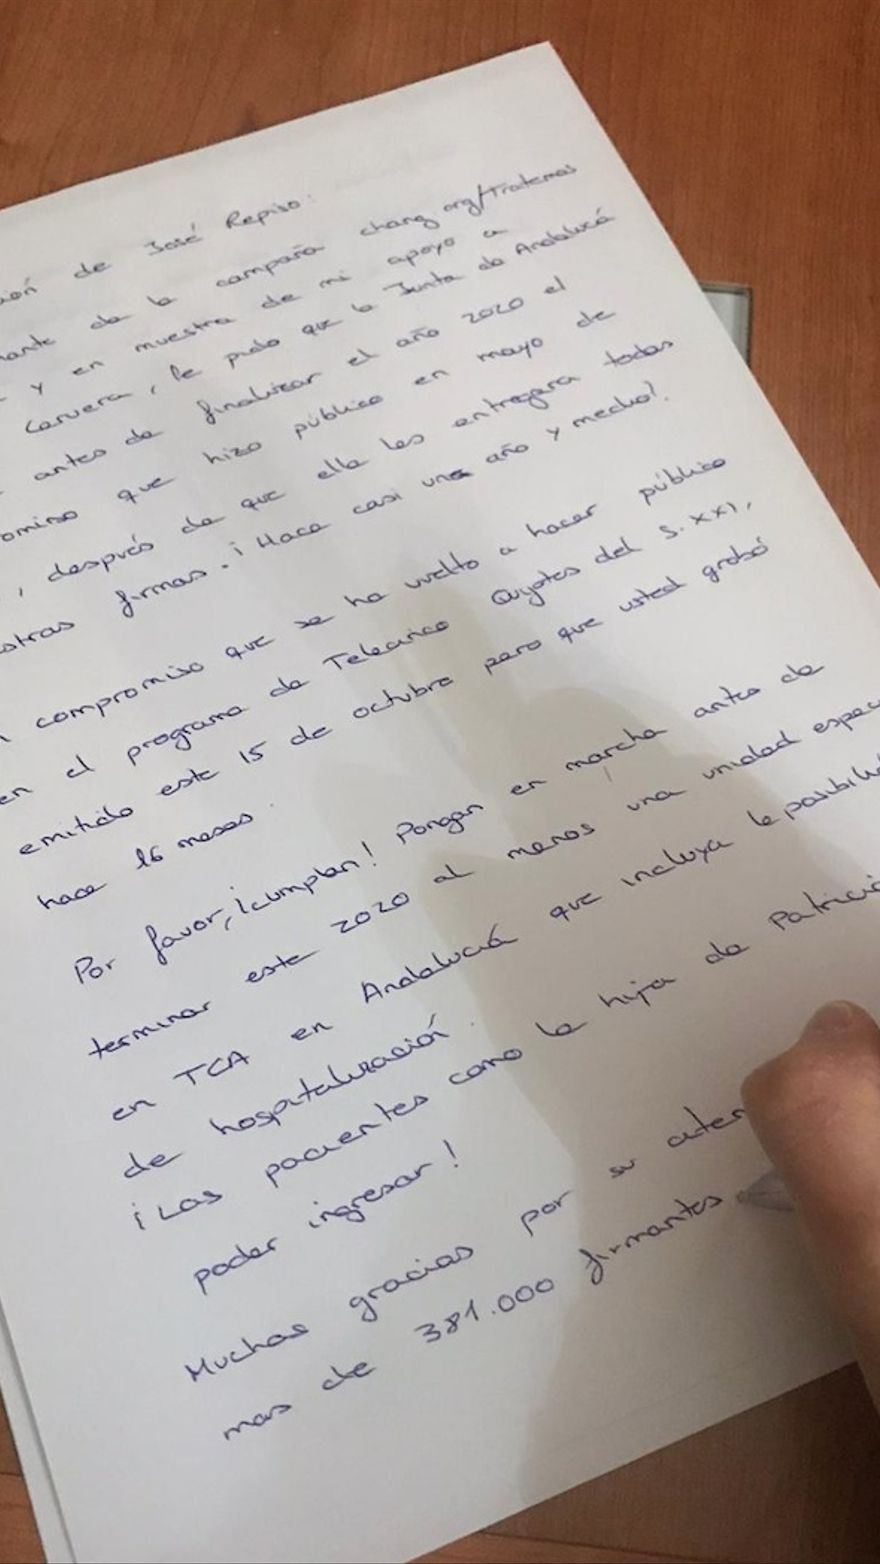 ión de José Repiso:
mante de la campaña chang.org/Tratemos
y en muestra de mi apoyo a
Carvera, le pido que la Junta de Andalucía
antes de finalizar el año 2020 el
omiso que hizo público en mayo de
, después de que ella les entregara todas
stras firmas. ¡Hace casi una año y medio!.
compromiso que se ha vuelto a hacer público
en el programa de Telecinco Quijotes del S.XXI,
emitido este 15 de octubre pero que usted grabó
hace 16 meses.
Por favor, ¡cumplan! Pongan en marcha antes de
terminar este 2020 al menos una unidad espec
en TCA en Andalucía que incluya la posibilid
de hospitalización.
¡Las pacientes como la hija de Patricia
poder ingresar!
Muchas gracias por su aten
mas de 381.000 firmantes